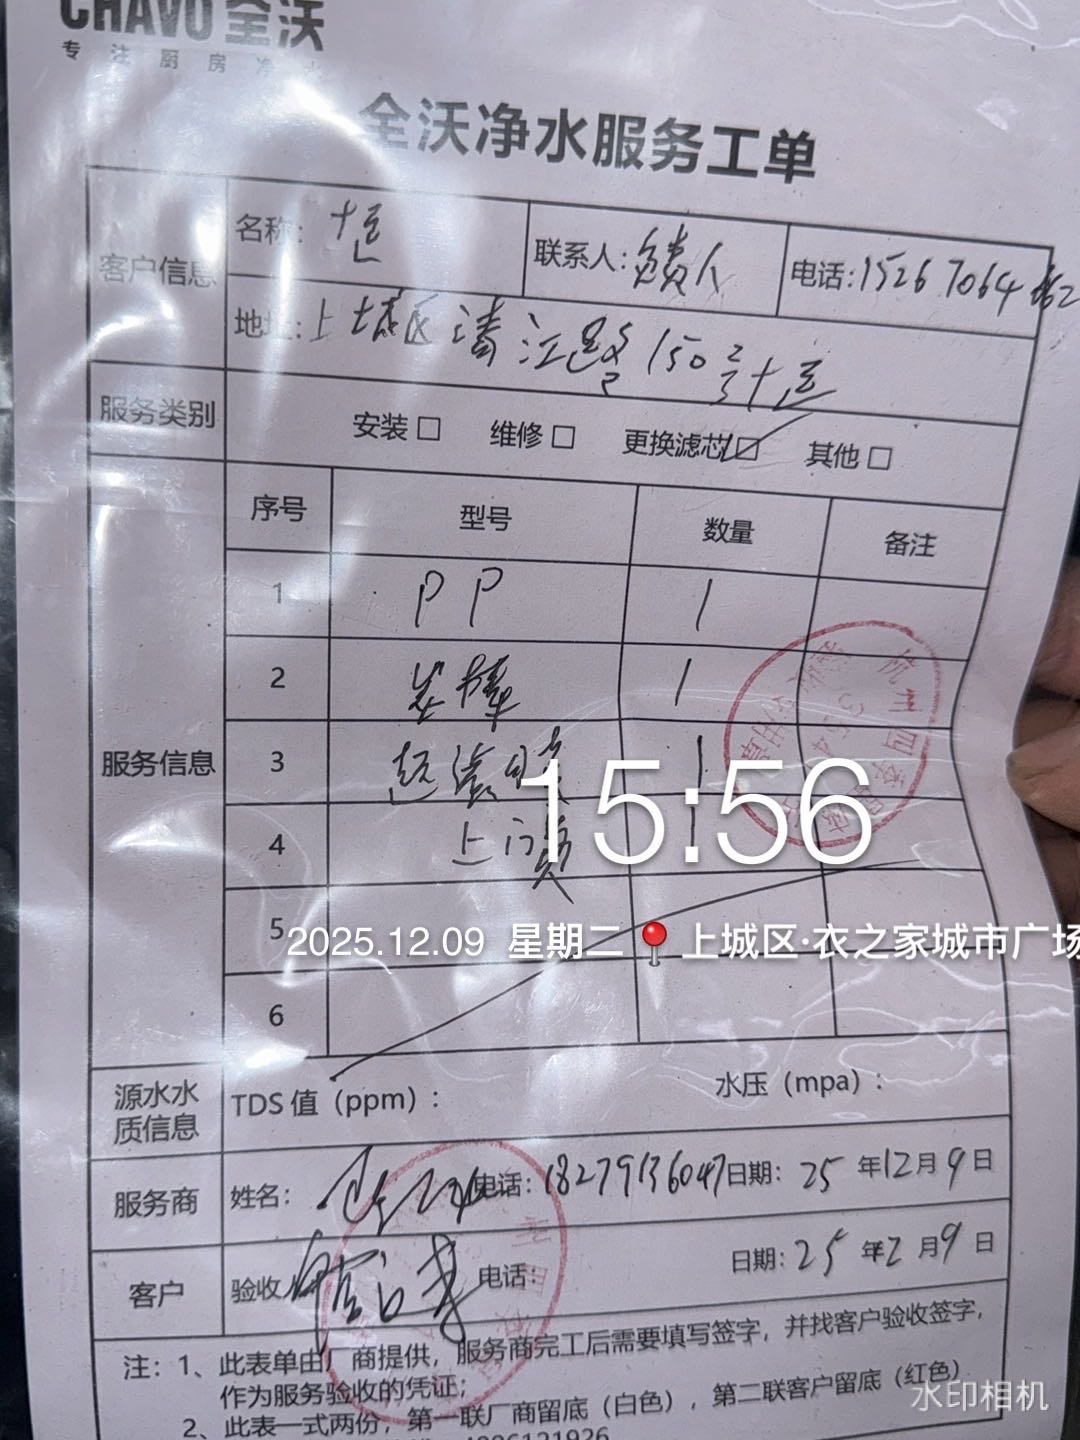 CHAVO 全沃
专 注 厨 房 净 水
全沃净水服务工单
客户信息
名称：
联系人：负责人
电话：15267064
地址：上城区清江路150号十
服务类别
安装□ 维修□ 更换滤芯☑ 其他□
服务信息
序号 型号 数量 备注
1 PP 1
2 炭棒 1
3 超滤膜 1
4 上门费 1
5
6
15:56
2025.12.09 星期二 上城区·衣之家城市广场
源水水质信息
TDS 值（ppm）： 水压（mpa）：
服务商
姓名： 电话：18279136047 日期：25 年12月9日
客户
验收 电话： 日期：25 年12月9日
注：1、此表单由厂商提供，服务商完工后需要填写签字，并找客户验收签字，
作为服务验收的凭证；
2、此表一式两份，第一联厂商留底（白色），第二联客户留底（红色）
4006121926
水印相机